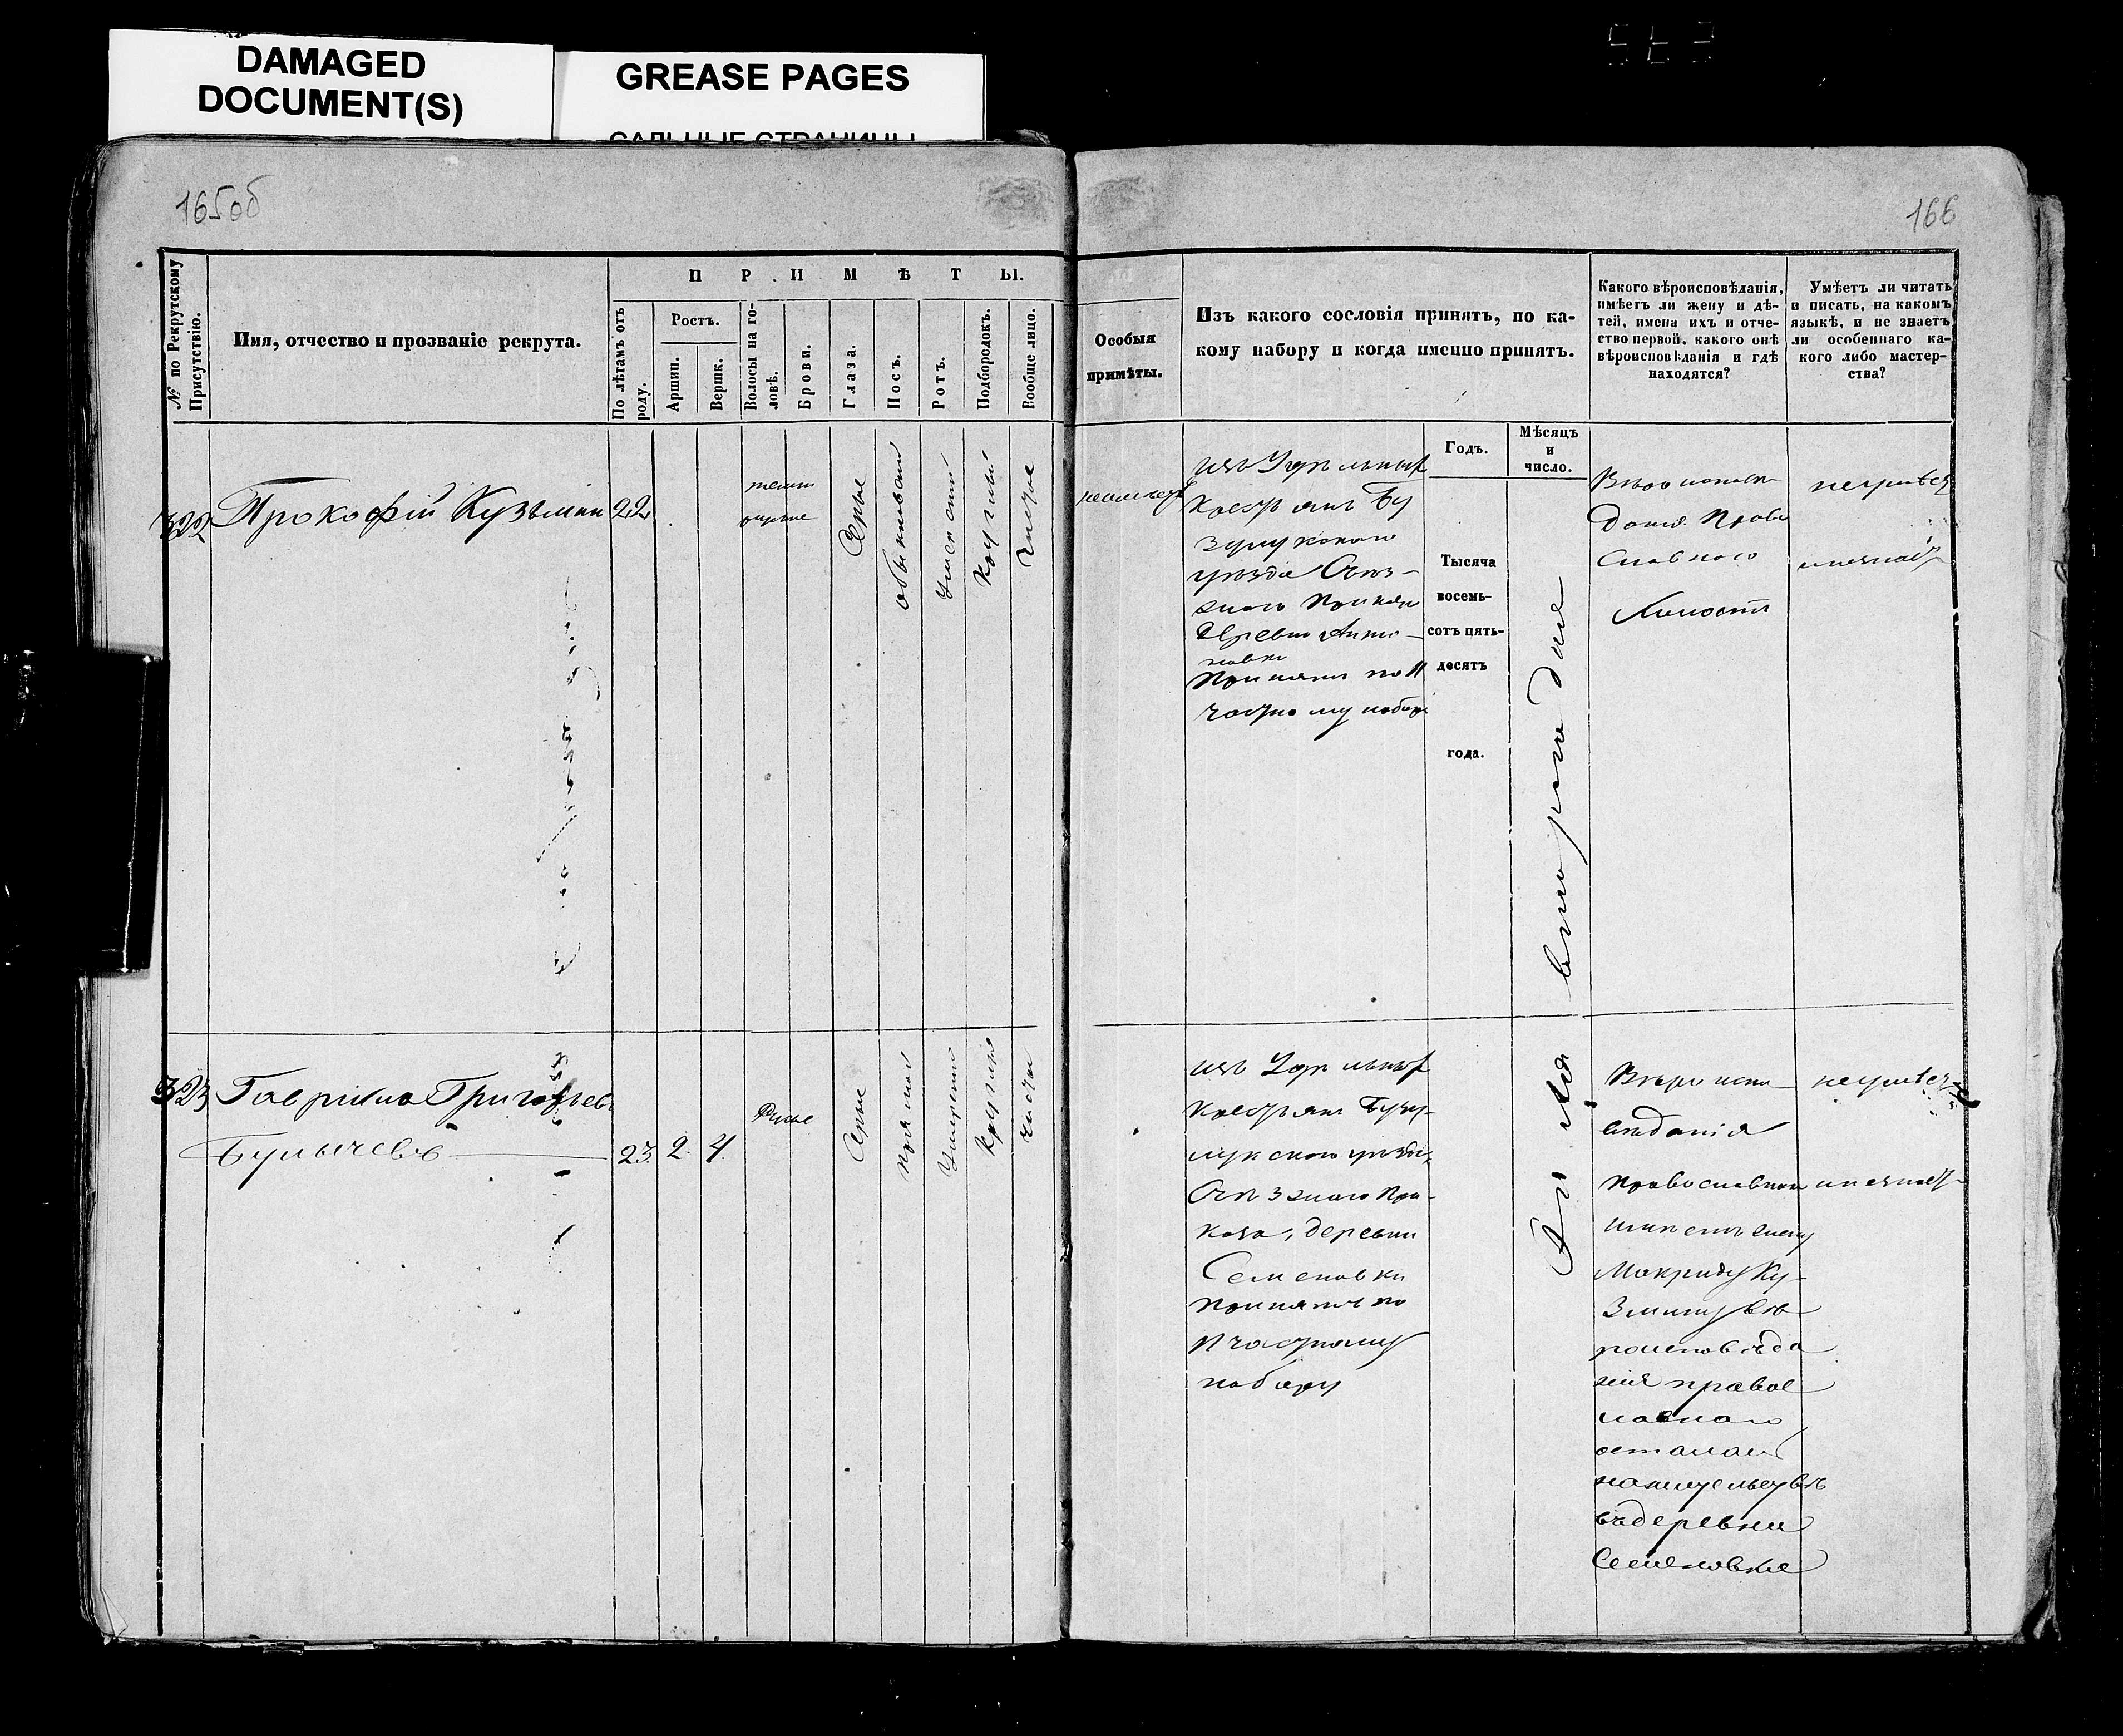 DAMAGED
DOCUMENT(S)
GREASE PAGES
САЛЬНЫЕ СТРАНИЦЫ
165об
166
№ по Рекрутскому
Присутствію.
Имя, отчество и прозваніе рекрута.
ПРИМѢТЫ.
По лѣтамъ отъ
роду.
Ростъ.
Аршин.
Вершк.
Волосы на го-
ловѣ.
Брови.
Глаза.
Носъ.
Ротъ.
Подбородокъ.
Вообще лицо.
Особыя
примѣты.
Изъ какого сословія принятъ, по ка-
кому набору и когда именно принятъ.
Какого вѣроисповѣданія,
имѣетъ ли жену и дѣ-
тей, имена ихъ и отче-
ство первой, какого онѣ
вѣроисповѣданія и гдѣ
находятся?
Умѣетъ ли читать
и писать, на какомъ
языкѣ, и не знаетъ
ли особеннаго ка-
кого либо мастер-
ства?
Годъ.
Мѣсяцъ
и
число.
322
Прокофій Кузьмин
22
темно
русые
Серые
обыкновен
Умеренный
Круглый
Чистое
неимеетъ
изъ Удельныхъ
Крестьянъ Бу
зулукскаго
уезда
деревни
Принятъ по 11
частному набору
Тысяча
восемь-
сотъ пять-
десятъ
года.
Апреля второго дня
Вероисповѣ
дания Право
славного
Холостъ
неумѣетъ
и незнаетъ
323
Гаврила Григорьевъ
Булычевъ
23
2
4
Русые
Серые
Прямой
Умеренный
Круглый
чистое
изъ Удельныхъ
Крестьянъ Бузу-
лукскаго уезда,
При-
каза, деревни
Семеновки
принятъ по
11 частному
набору
Вѣроиспо-
веданія
православного
имеетъ жену
Макриду Ку-
змину вѣ-
роисповѣда
ния правос
лавнаго
осталась
на жительствѣ
въ деревни
Семеновке
неумѣетъ
и незнаетъ